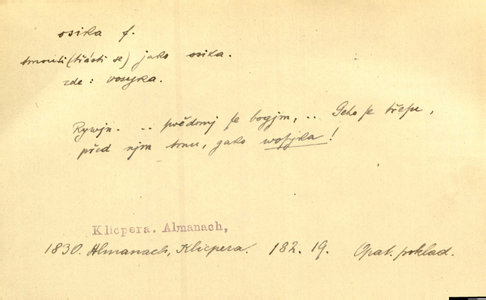 osika f.
trnouti (třásti se) jako osika.
zde: vosyka.
Rywjn. .. swědomj se bogjm, .. Geho se třesu,
před njm trnu, gako wosyka!
Klicpera. Almanach,
1830. Almanach, Klicpera. 182. 19. Opat. poklad.